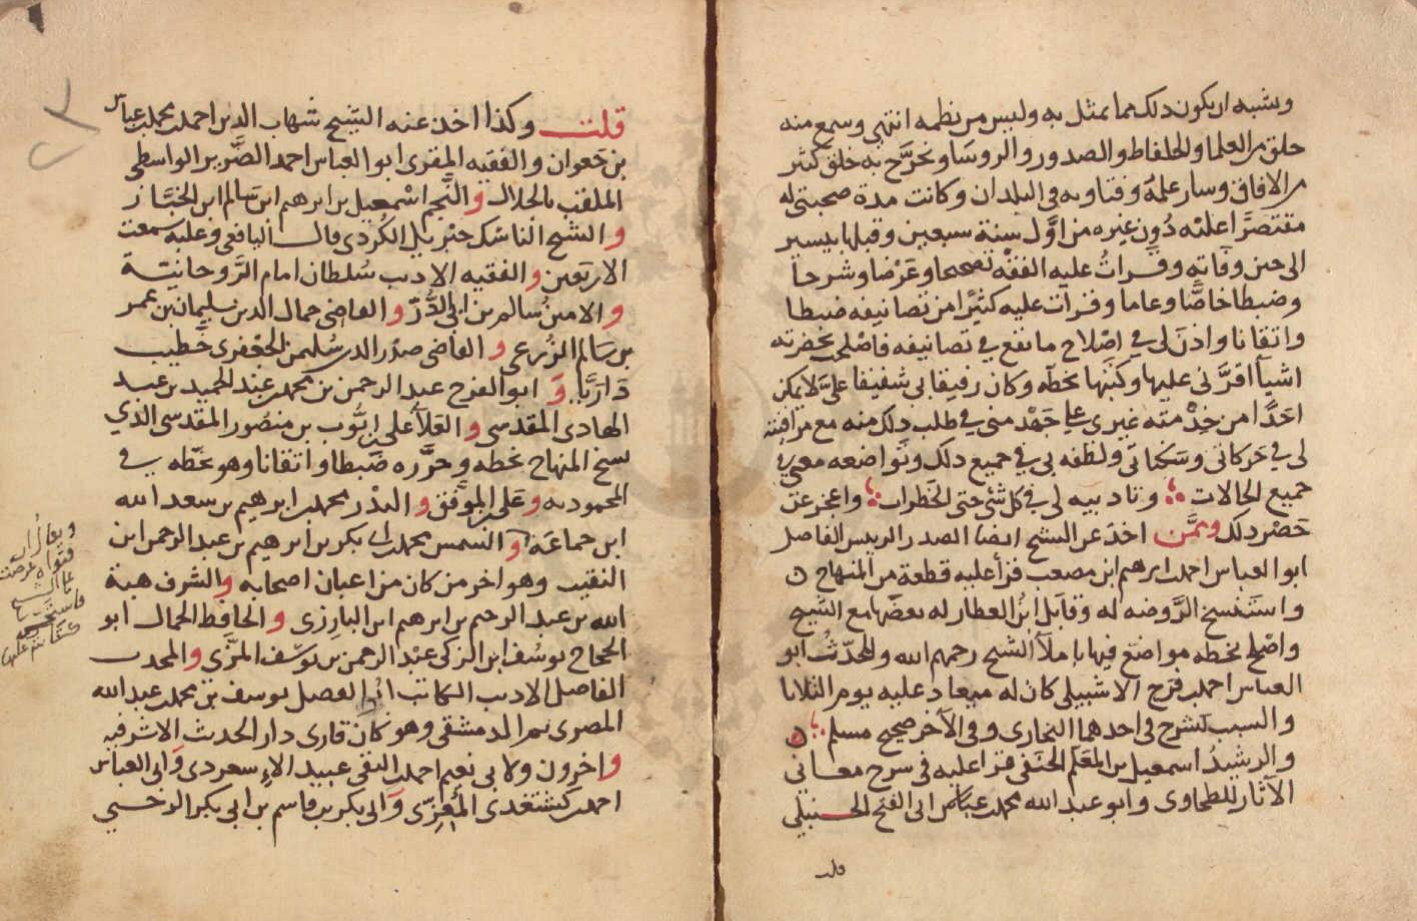 ويشبه ان يكون ذلك مما يمثل به وليس من نظمه انتهى وسمع منه
خلق من العلما والحفاظ والصدور والروسا وتخرج به خلق كثير
من الافاق وسار علمه وفتاويه في البلدان وكانت مدة صحبتي له
مقتصرا عليه دون غيره من اول سنة سبعين وقبلها بيسير
الى حين وفاته وقرات عليه الفقه تصحيحا وعرضا وشرحا
وضبطا خاصا وعاما وقرات عليه كثيرا من تصانيفه ضبطا
واتقانا واذن لي في اصلاح ما يقع في تصانيفه فاصلحت بحضرته
اشيا اقرني عليها وكتبها بخطه وكان رفيقا بي شفيقا علي لا يمكن
احدا من خدمته غيري على جهد مني في طلب ذلك منه مع مراقبته
لي في حركاتي وسكناتي ولطفه بي في جميع ذلك وتواضعه معي في
جميع الحالات وتاديبه لي في كل شي حتى الخطرات واعجز عن
حصر ذلك وممن اخذ عن الشيخ ايضا الصدر الريس الفاضل
ابو العباس احمد بن ابرهيم ابن مصعب قرأ عليه قطعة من المنهاج ن
واستنسخ الروضه له وقابل ابن العطار له بعضها مع الشيخ
واصلح بخطه مواضع فيها باملأ الشيخ رحمهم الله والمحدث ابو
العباس احمد بن فرج الاشبيلي كان له ميعاد عليه يوم الثلاثا
والسبت يشرح في احدهما البخاري وفي الآخر صحيح مسلم ن
والرشيد اسمعيل بن المعلم الحنفي قرا عليه في شرح معاني
الآثار للطحاوي وابو عبد الله محمد بن ابي الفتح الحنبلي
قلت
قلت وكذا اخذ عنه الشيخ شهاب الدين احمد بن محمد بن عباس
بن جعوان والفقيه المقرى ابو العباس احمد الضرير الواسطي
الملقب بالجلال والنجم اسمعيل بن ابرهيم ابن سالم ابن الخباز
والشيخ الناسك جبريل الكردي قال اليافعي وعليه سمعت
الاربعين والفقيه الاديب سلطان امام الرواحية
والامين سالم بن ابي الدر والقاضي جمال الدين سليمان بن عمر
بن سالم الزرعي والقاضي صدر الدين سليمن الجعفري خطيب
داريا وابو الفرج عبد الرحمن بن محمد بن عبد الحميد بن عبد
الهادي المقدسي والعلأ علي بن ايوب بن منصور المقدسي الذي
نسخ المنهاج بخطه وحرره ضبطا واتقانا وهو بخطه في
المحموديه وعلي الموفق والبدر محمد بن ابرهيم بن سعد الله
ابن جماعة والشمس محمد بن ابي بكر بن ابرهيم بن عبد الرحمن ابن
النقيب وهو اخر من كان من اعيان اصحابه والشرف هبة
الله بن عبد الرحيم بن ابرهيم ابن البارزي والحافظ الجمال ابو
الحجاج يوسف ابن الزكي عبد الرحمن بن يوسف المزي والمجد
الفاضل الاديب الكاتب ابو الفضل يوسف بن محمد بن عبد الله
المصري ثم الدمشقي وهو كان قاري دار الحديث الاشرفيه
واخرون ولابي نعيم احمد بن التقي عبيد الاسعردي وابي العباس
احمد بن كشتغدي المعزي وابي بكر بن قاسم بن ابي بكر الرحبي